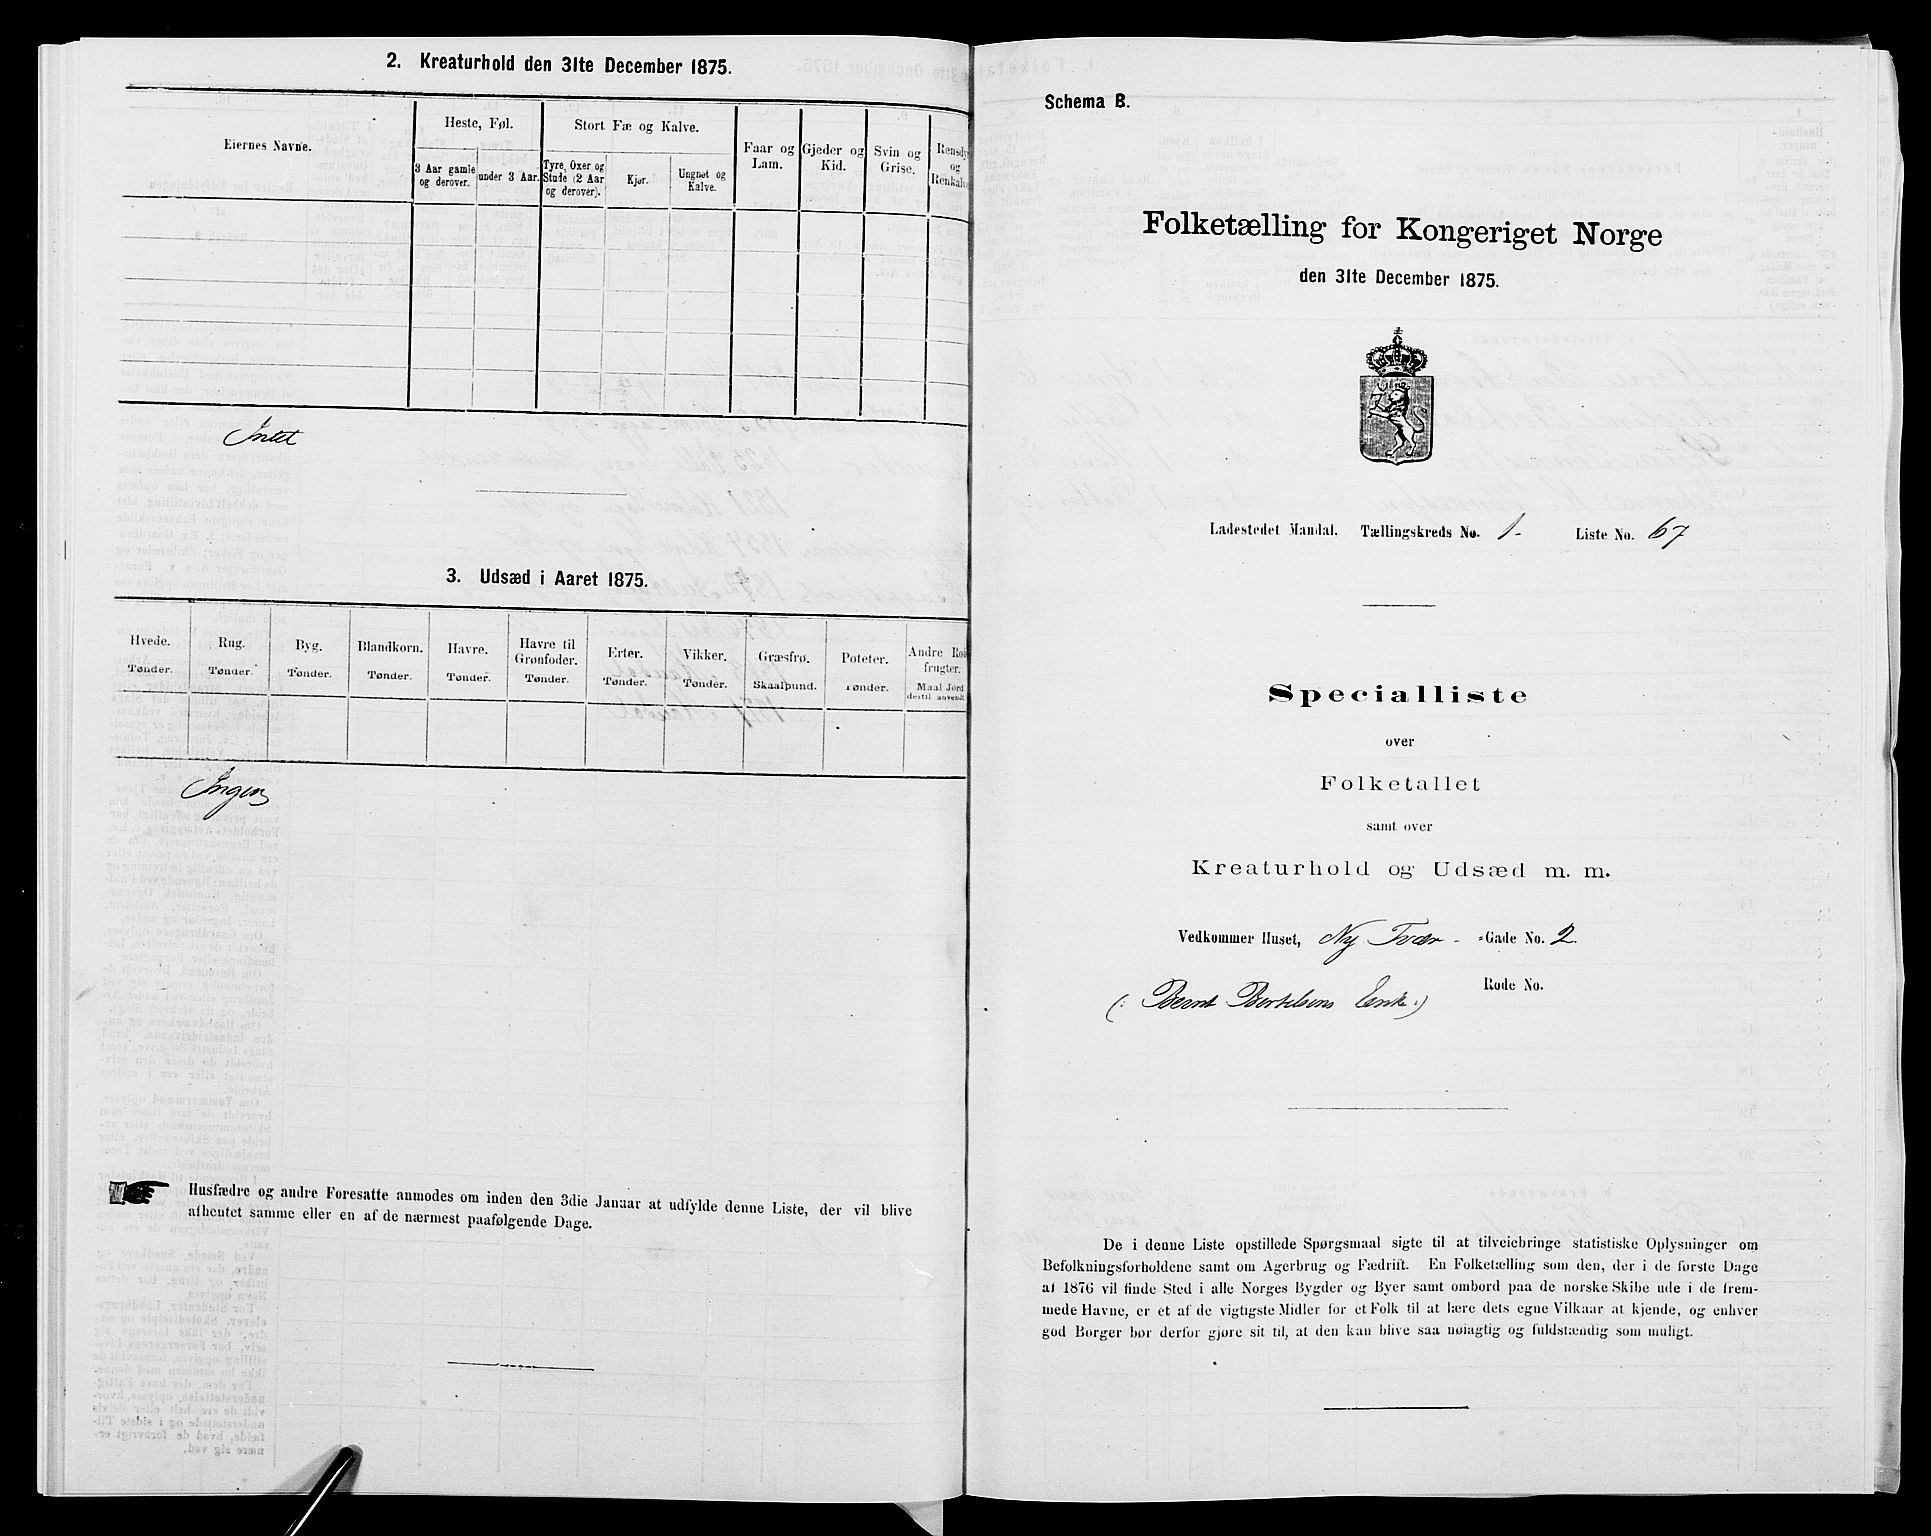 2. Kreaturhold den 31te December 1875.
Eiernes Navne.
Heste, Føl.
Stort Fæ og Kalve.
Faar og Lam.
Gjeder og Kid.
Svin og Grise.
Rensdyr og Renkalve
3 Aar gamle og derover.
under 3 Aar.
Tyre, Oxer og Stude (2 Aar og derover).
Kjør.
Ungnøt og Kalve.
Intet
3. Udsæd i Aaret 1875.
Hvede. Tønder.
Rug. Tønder.
Byg. Tønder.
Blandkorn. Tønder.
Havre. Tønder.
Havre til Grønfoder. Tønder.
Erter. Tønder.
Vikker. Tønder.
Græsfrø. Skaalpund.
Poteter. Tønder.
Andre Rodfrugter. Maal Jord dertil anvendt.
Ingen
Husfædre og andre Foresatte anmodes om inden den 3die Januar at udfylde denne Liste, der vil blive
afhentet samme eller en af de nærmest paafølgende Dage.
Schema B.
Folketælling for Kongeriget Norge
den 31te December 1875.
Ladestedet Mandal. Tællingskreds No. 1- Liste No. 67
Specialliste
over
Folketallet
samt over
Kreaturhold og Udsæd m. m.
Vedkommer Huset, Ny Tvær- -Gade No. 2.
Rode No.
(: Bernt Bertelsens Enke :)
De i denne Liste opstillede Spørgsmaal sigte til at tilveiebringe statistiske Oplysninger om
Befolkningsforholdene samt om Agerbrug og Fædrift. En Folketælling som den, der i de første Dage
af 1876 vil finde Sted i alle Norges Bygder og Byer samt ombord paa de norske Skibe ude i de frem-
mede Havne, er et af de vigtigste Midler for et Folk til at lære dets egne Vilkaar at kjende, og enhver
god Borger bør derfor gjøre sit til, at den kan blive saa nøiagtig og fuldstændig som muligt.